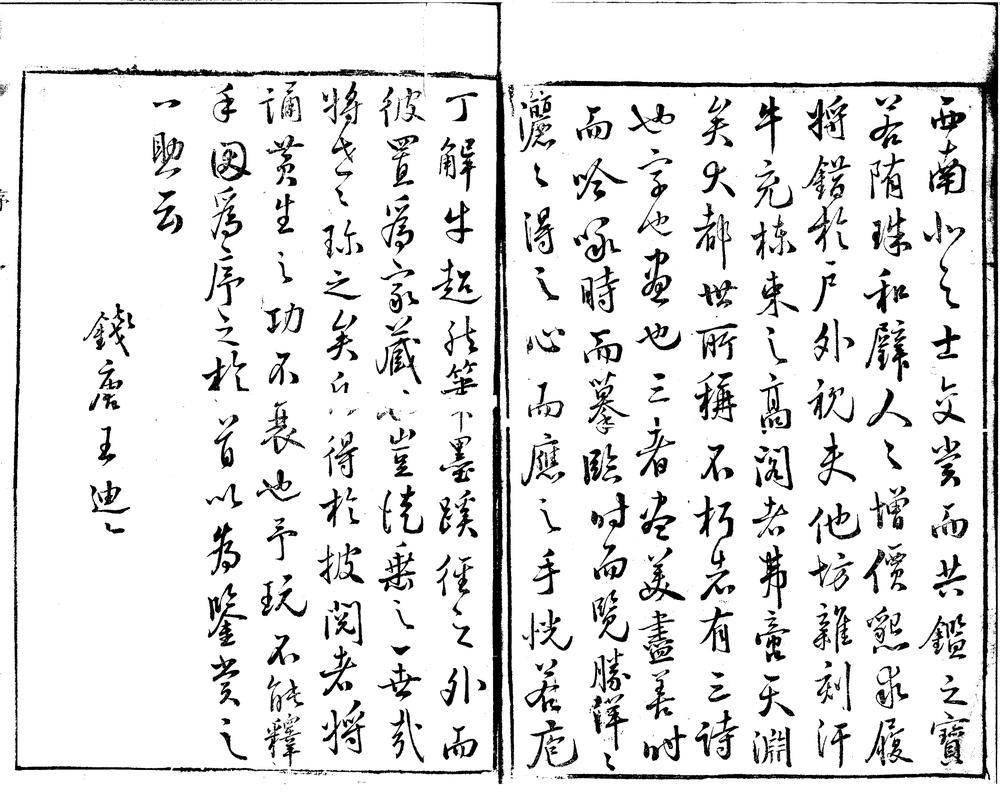 西南北之士交賞而共鑑之寶
若隋珠和璧人々增價懇求履
將錯於戶外視夫他坊雜刻汗
牛充棟束之高閣者弗啻天淵
矣大都世所稱不朽者有三詩
也字也畫也三者盡美盡善時
而吟咏時而摹臨時而覽勝洋々
灑々得之心而應之手恍若庖
丁解牛超然筆下墨蹊徑之外而
彼置爲家藏豈徒秉之一世哉
將世々珍之矣得於披閱者將
誦黃生之功不衰也予玩不能釋
手因爲序之於首以爲鑒賞之
一助云
錢唐王迪